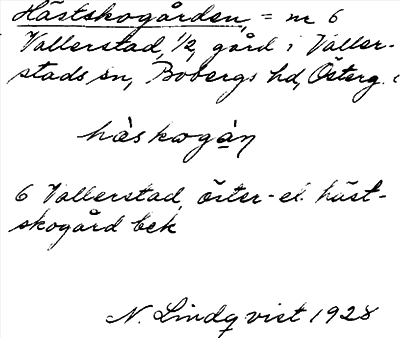 Hästskogården, = nr 6
Vallerstad, 1/2, gård i Valler-
stads sn, Bobergs hd, Österg.
hàskogàn
6 Vallerstad, öster- el. häst-
skogård bek
N. Lindqvist 1928